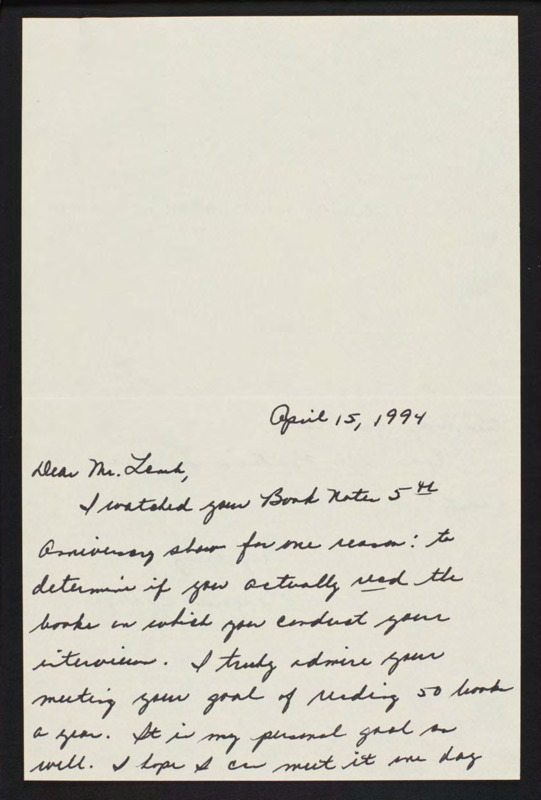 April 15, 1994
Dear Mr. Lamb,
I watched your Book Notes 5th
Anniversary show for one reason: to
determine if you actually read the
books on which you conduct your
interviews. I truly admire your
meeting your goal of reading 50 books
a year. It is my personal goal as
well. I hope I can meet it one day